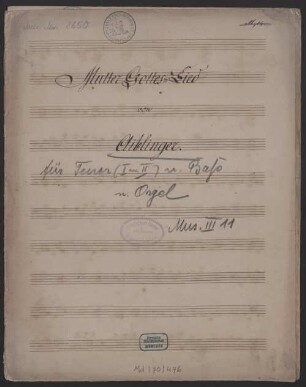 1850
Mutter Gottes-Lied
von
Aiblinger.
für Tenor (I u II) u. Baß
u. Orgel
Mus. III 11
Md 130/476